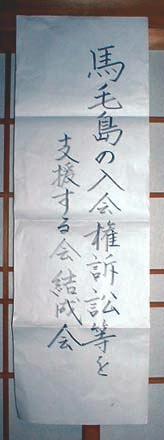 馬毛島の入会権訴訟等を
支援する会結成会